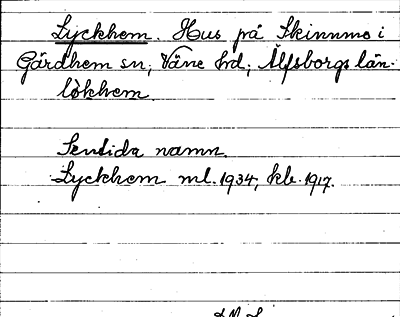 Lyckhem. Hus på Skinnmo i
Gärdhem sn; Väne hd; Älfsborgs län.
lòkhem
Sentida namn.
Lyckhem ml. 1934, kb. 1917.